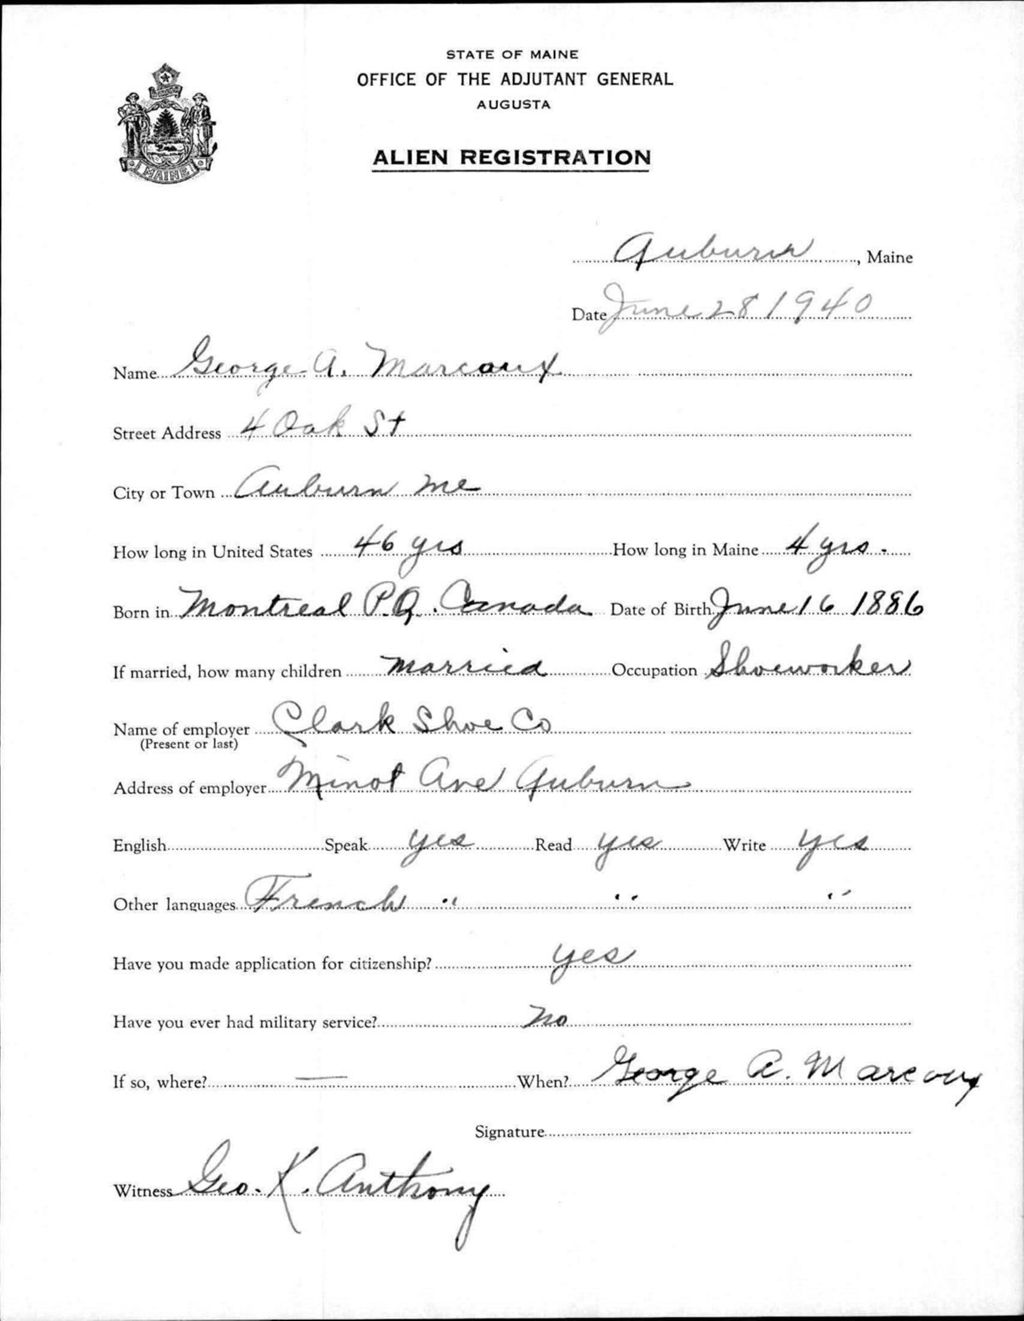 STATE OF MAINE
OFFICE OF THE ADJUTANT GENERAL
AUGUSTA
ALIEN REGISTRATION
MAINE
Auburn, Maine
Date June 28 1940
Name George A. Marcoux
Street Address 4 Oak St
City or Town Auburn Me
How long in United States 46 yrs How long in Maine 4 yrs.
Born in Montreal P.Q. Canada Date of Birth June 16 1886
If married, how many children married Occupation Shoeworker
Name of employer Clark Shoe Co
(Present or last)
Address of employer Minot Ave Auburn
English Speak yes Read yes Write yes
Other languages French " " "
Have you made application for citizenship? yes
Have you ever had military service? no
If so, where? — When? George A. Marcoux
Signature
Witness Geo. K. Anthony